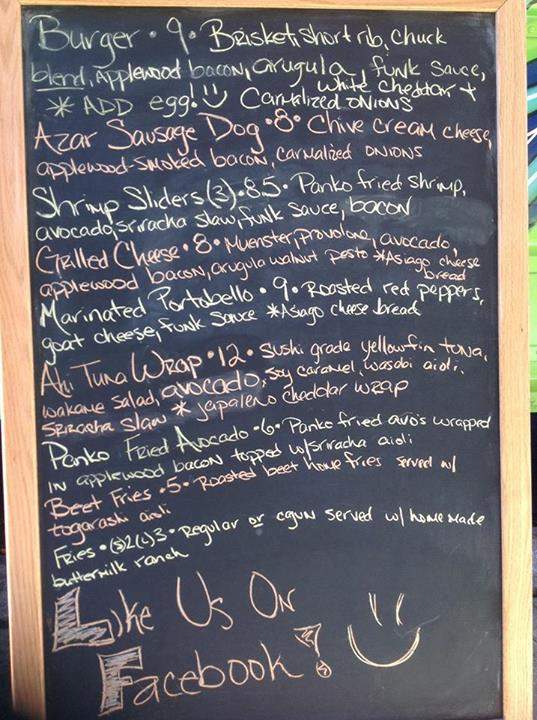 Burger • 9 • Brisket, short rib, chuck
blend, Applewood bacon, arugula, funk sauce,
white cheddar +
* ADD egg! Carmalized ONIONS
Azar Sausage Dog • 8 • Chive cream cheese,
applewood-smoked bacon, carmalized ONIONS
Shrimp Sliders (3) • 8.5 • Panko fried shrimp,
avocado, sriracha slaw, funk sauce, bacon
Grilled Cheese • 8 • Muenster, provolone, avocado,
applewood bacon, arugula walnut pesto *Asiago cheese
bread
Marinated Portobello • 9 • Roasted red peppers,
goat cheese, funk sauce *Asiago cheese bread
Ahi Tuna Wrap • 12 • Sushi grade yellowfin tuna,
wakame salad, avocado, soy caramel, wasabi aioli,
sriracha slaw * jalapeno cheddar wrap
Panko Fried Avocado • 6 • Panko fried avo's wrapped
in applewood bacon topped w/ sriracha aioli
Beet Fries • 5 • Roasted beet home fries served w/
togarashi aioli
Fries • (s) 2 (L) 3 • Regular or cajun served w/ homemade
buttermilk ranch
Like Us On
Facebook!